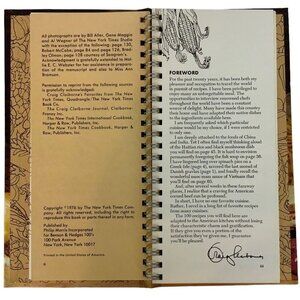 All photographs are by Bill Aller, Gene Maggio
and Al Wegener of The New York Times Studio
with the exception of the following: page 130,
Robert McCabe, page 84 and page 126, Brad-
ley Olman; page 138 courtesy of Seagram's.
Acknowledgment is gratefully extended to Vel-
ia E. C. Webster for her assistance in prepara-
tion of the manuscript and also to Miss Ann
Bramson
Permission to reprint from the following
sources is gratefully acknowledged:
Craig Claiborne's Favorites from The New
York Times, Quadrangle/The New York Times
Book Co.
The Craig Claiborne Journal, Claiborne-
Franey Inc.
The New York Times International Cookbook,
Harper & Row, Publishers, Inc.
The New York Times Cookbook, Harper &
Row, Publishers, Inc.
Copyright ©1976 by The New York Times Com-
pany. All rights reserved, including the right to
reproduce this book or parts thereof in any form.
Published by
Philip Morris Incorporated
for Benson & Hedges 100's
100 Park Avenue
New York, New York 10017
Printed in the United States of America
FOREWORD
For the past twenty years, it has been both my
pleasure and occupation to travel the world
in pursuit of recipes. I have been privileged to
dine at many an unforgettable meal. The
opportunities to interview renowned chefs
throughout the world have been a constant
source of delight. Many have made this country
their home and have adapted their native dishes
to the ingredients available here.
I am frequently asked which particular
cuisine would be my choice, if I were restricted
to only one.
I am deeply attached to the foods of China
and India. Yet I often find myself thinking about
of the Haitian rice and black mushroom dish
you will find on page 45. It is hard to envision
permanently foregoing the fish soup on page 36.
I have lingered long over spinach pies on a
Greek isle (page 45), savored the last morsel of
Danish gravlax (page 31), and fondly recall the
wonderful mien mane sauce of Vietnam that
you'll find on page 85.
And, after several weeks in these faraway
places, I confess that a craving for American
corned beef can be profound.
In short, I have no one favorite cuisine.
Rather, I revel in a long list of favorite recipes
from many cuisines.
The 100 recipes you will find here are
adapted to the American kitchen without losing
their characteristic charm and gratification.
If they give you even a portion of the
satisfaction they've given me, I guarantee
you'll be pleased.
Craig Claiborne